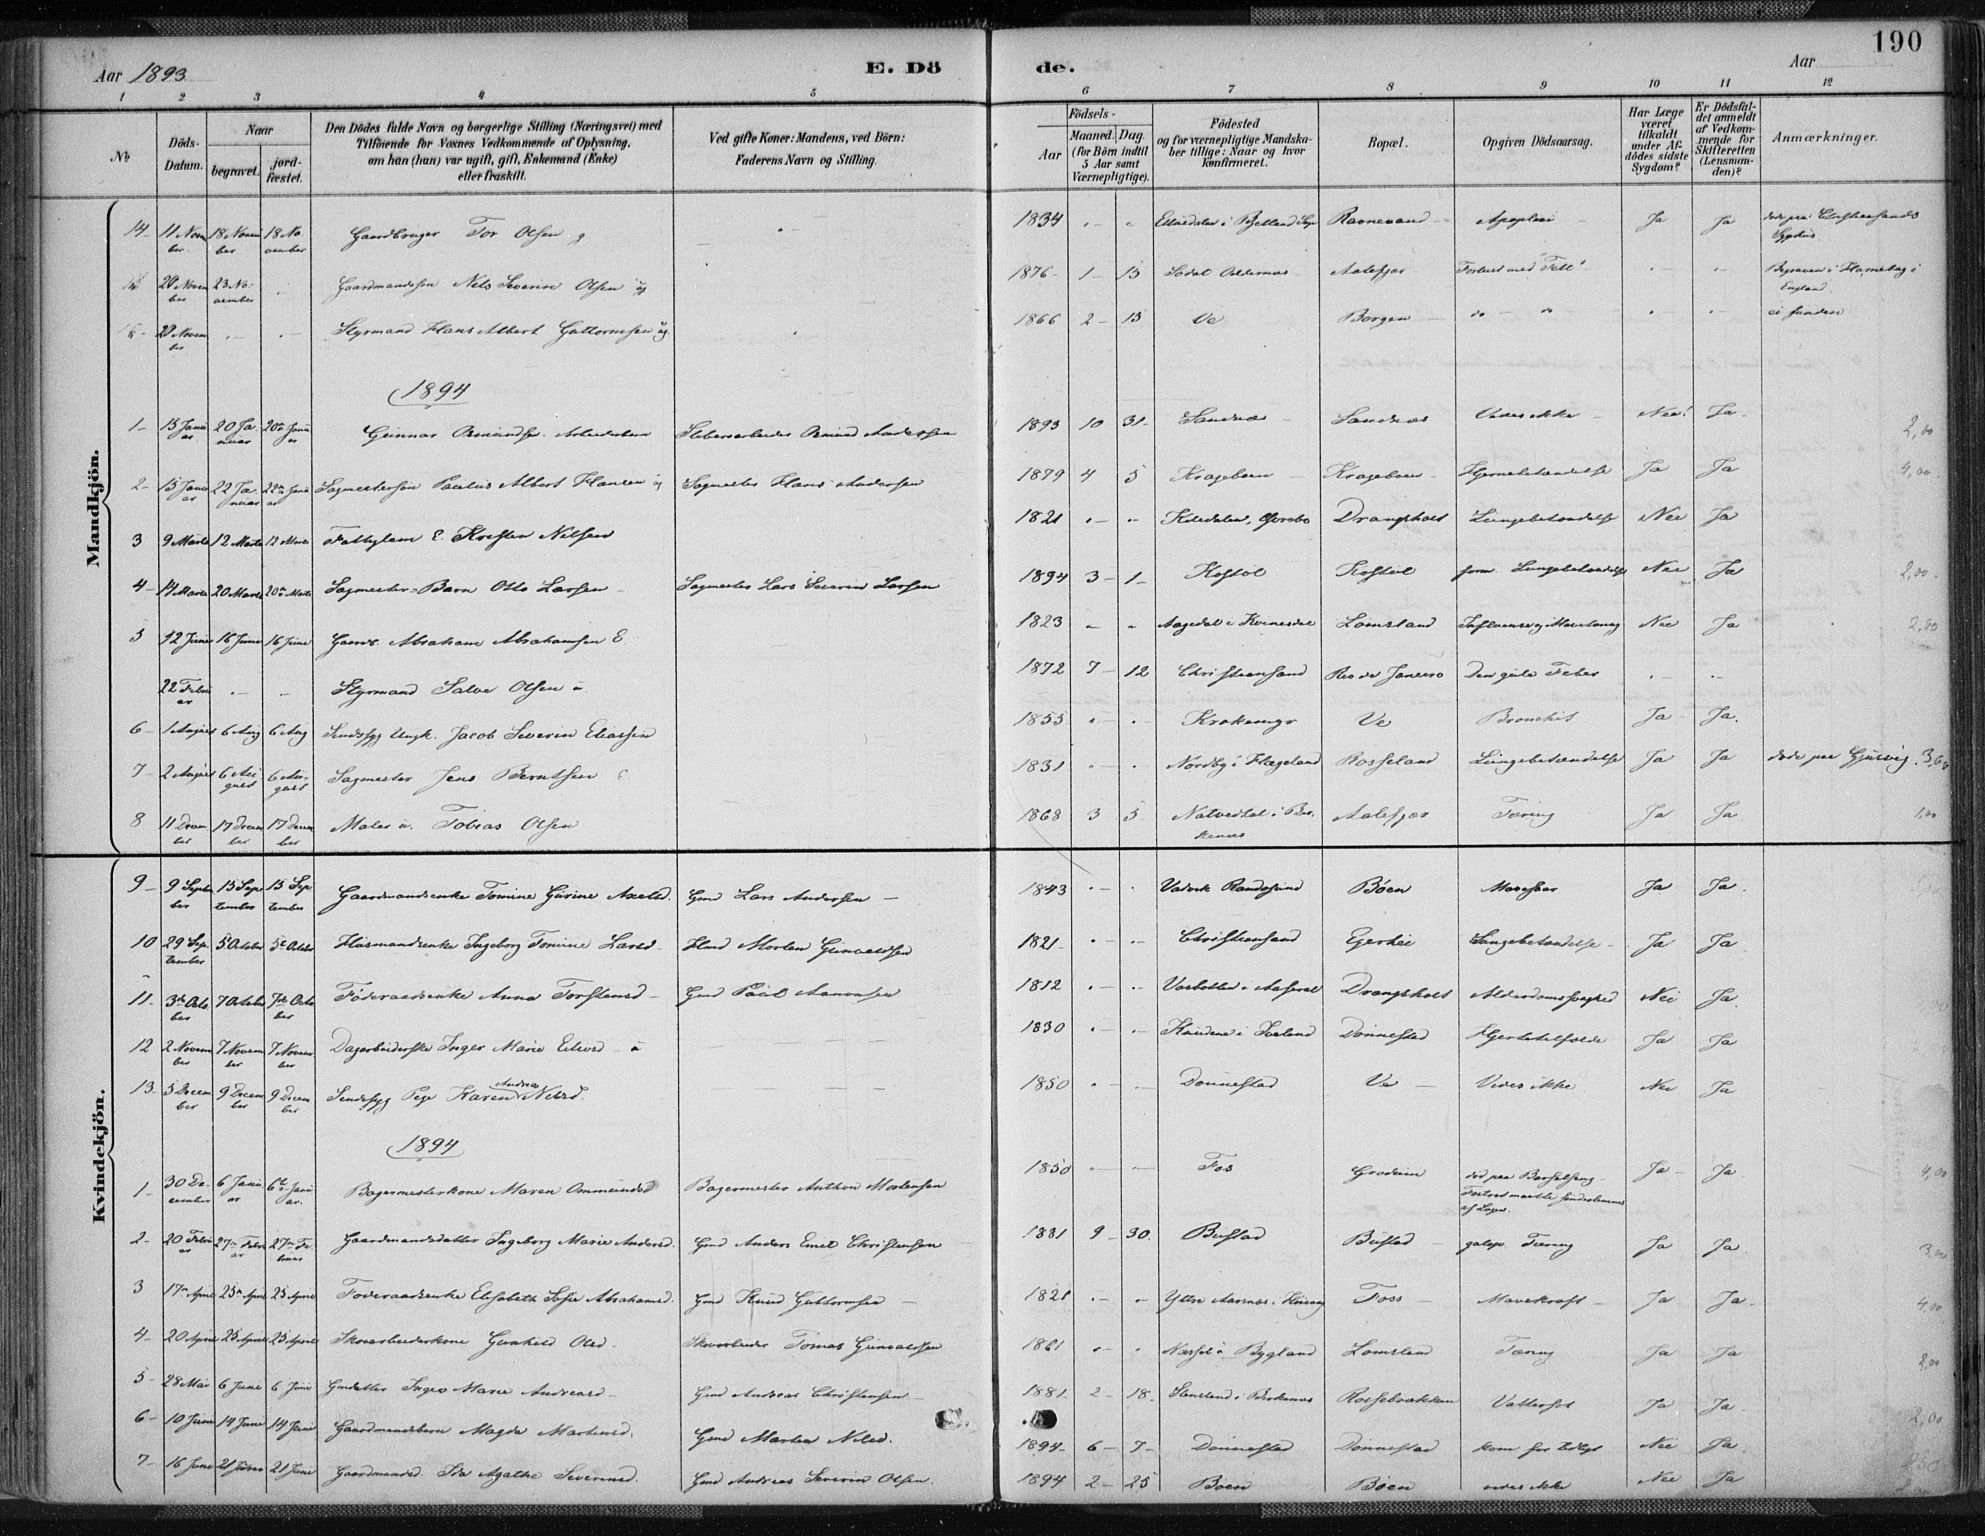 190
Aar 1893
E. Dö
de.
Aar
1 2 3 4 5
6 7 8 9 10 11 12
№
Döds-Datum.
Naar
begravet.
jord-fæstet.
Den Dödes fulde Navn og borgerlige Stilling (Næringsvei) med
Tilföiende for Voxnes Vedkommende af Oplysning,
om han (hun) var ugift, gift, Enkemand (Enke)
eller fraskilt.
Ved gifte Koner: Mandens, ved Börn:
Faderens Navn og Stilling.
Födsels-
Aar
Maaned. Dag.
(for Börn indtil
5 Aar samt
Værnepligtige).
Födested
og for værnepligtige Mandska-
ber tillige: Naar og hvor
konfirmeret.
Bopæl.
Opgiven Dödsaarsag.
Har Læge
været
tilkaldt
under Af-
dödes sidste
Sygdom?
Er Dödsfal-
det anmeldt
af Vedkom-
mende for
Skifteretten
(Lensman-
den)?
Anmærkninger.
Mandkjön.
14 11 Novem ber 18 Novem ber 18 No vember Gaardbruger Tor Olsen g 1834 Ravnevand Apoplexi Ja Ja døde paa Christiansands Sygehus
20 Novem ber 23 No vember Gaardmandssøn Nels Severin Olsen ug 1876 1 15 Aalefjær Forlist med "Tell" Begraven i England
20 Novem ber Styrmand Hans Albert Guttormsen ug 1866 2 15 Ve Borgen do do ei funden
1894
1 15 Janu ar 20 Ja nuar 20de Janu ar Gunnar Osmunds. Arbeiderbarn Osmund Anderssen 1893 10 31 Sandnæs Sandnæs Vides ikke Nei Ja 2,00
2 15 Janu ar 22 Ja nuar 22de Janu ar Sagmestersøn Paulus Albert Hansen ug Sagmester Hans Andersen 1879 4 5 Krageboen Krageboen Hjernebetændelse Ja Ja 4,00
3 9 Marts 12 Marts 12 Marts Fattiglem E. Kristen Nilsen 1821 Drangsholt Lungebetændelse Nei Ja
4 14 Marts 20 Marts 20de Marts Sagmester-Barn Otto Larsen Sagmester Lars Severin Larsen 1894 3 1 Kostøl Kostøl form. Lungebetændelse Nei Ja 2,00
5 12 Juni 16 Juni 16 Juni Gaardb. Abraham Abrahamsen E. 1823 Aagedal i Kvinesdal Lomsland Influensa og Nei Ja 2,80
22 Febru ar Styrmand Salve Olsen u 1872 7 12 Christiansand Rio de Janeiro Den gule Feber
6 1 August 6 Aug 6 Aug Sindssyg Ungk. Jacob Severin Eliassen 1855 Krokemyr Ve Bronchit Ja Ja
7 2 August 6 Au gust 6 Au gust Sagmester Jens Berntsen E 1831 Nordby i Hægeland Rosseland Lungebetændelse Ja Ja døde paa Gjusvig 3,60
8 11 Decem ber 17 Decem ber 17 Decem ber Maler u. Tobias Olsen 1868 3 5 Natvedtal i Bir kenæs Aalefjær Tæring Ja Ja 1,00
Kvindekjön.
9 9 Septem ber 15 Sep tember 15 Sep tember Gaardmandsenke Tomine Gurine Axelsd. Gmd Lars Andersen 1843 Randøsund Bøen Mavesaar Ja Ja
10 29 Sep tember 5 October 5te October Husmandsenke Ingeborg Tomine Larsd. Hmd Morten Gunvaldsen 1821 Christiansand Egerhei Lungebetændelse Ja Ja
11 3de Octo ber 7 October 7de Octo ber Føderaadsenke Anna Torstensd Gmd Paul Aanonsen 1812 Aaseral Drangsholt Alderdomssvaghed Nei Ja
12 2 Novem ber 7 Novem ber 7 Novem ber Dagarbeiderske Inger Marie u 1830 Donnestad Hjertetilfælde Ja Ja
13 5 Decem ber 9 Decem ber 9 Decem ber Sindssyg Pige Karen Andrea Nilsd. 1850 Donnestad Ve Vides ikke Nei Ja
1894
1 30 De cember 6 Janu ar 6te Janu ar. Bagermesterkone Maren Ommundsd Bagermester Anthon Mortensen 1850 Fos Grødum død paa Barselseng Fostret maatte sønderlemmes af Lægen Ja Ja 4,00
2 20 Febru ar 27de Febru ar 27de Fe bruar Gaardmandsdatter Ingeborg Marie Andersd. Gmd Anders Emil Christensen 1881 9 30 Bustad Bustad galop. Tæring Ja Ja 3,00
3 17de April 25de April 25 April Føderaadsenke Elisabeth Sofie Abrahamsd. Gmd Knud Guttormsen 1821 Foss Mavekræft Ja Ja 4,00
4 20 April 25 April 25 April Skovarbeiderkone Gunhild Olsd. Skovarbeider Tomas Gunvaldsen 1861 Bygland Lomsland Tæring Ja Ja 2,00
5 28 Mai 6 Juni 6 Juni Gmdatter Inger Marie Andreasd Gmd Andreas Christensen 1881 2 18 Birkenæs Rossebrakken Vattersot Ja Ja
6 10 Juni 14 Juni 14 Juni Gaardmandsbarn Magda Martinsd. Gmd Martin Nilsd. 1894 6 7 Donnestad Donnestad kom for tidligt Nei Ja 2,00
7 16 Juni 21 Juni 21 Juni Gaardmandsd. Ida Agathe Severinsd. Gmd Andreas Severin Olsen. 1894 2 25 Boen Boen vides ikke Nei Ja